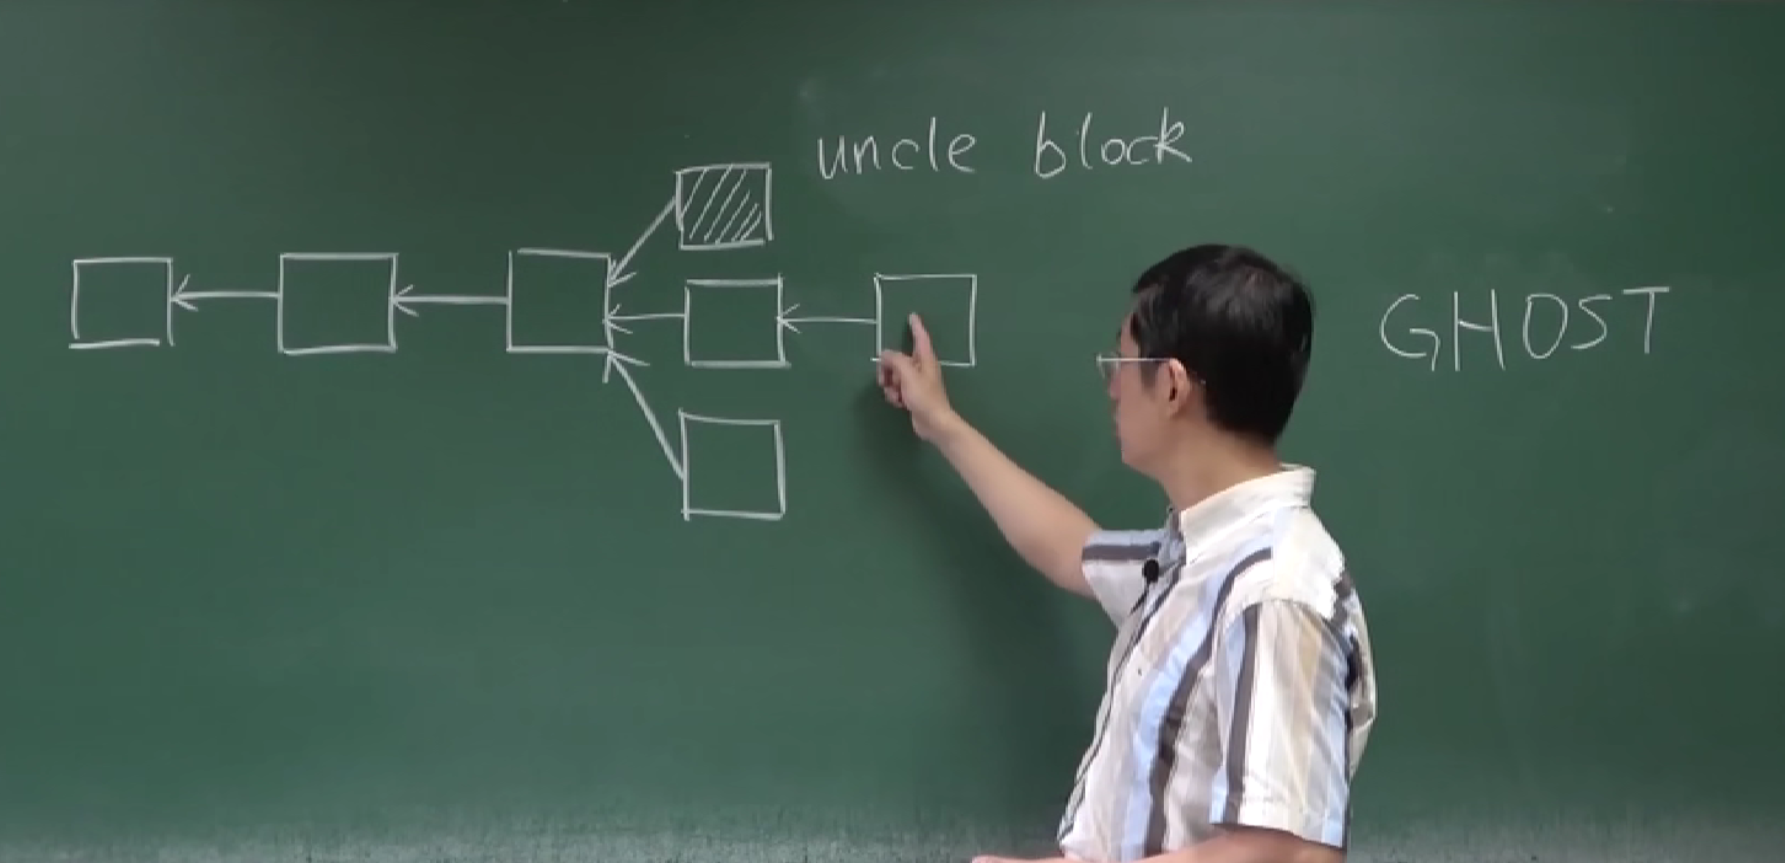 uncle block
GHOST